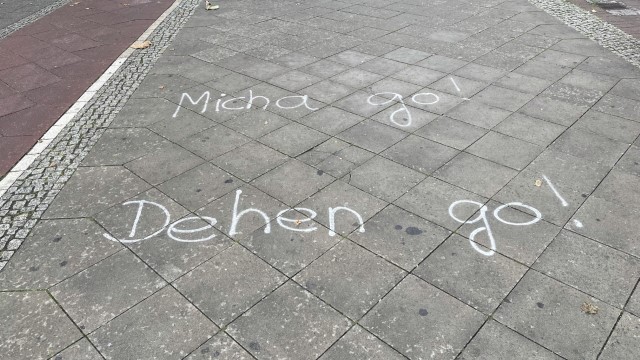 Micha go!
Dehen go!